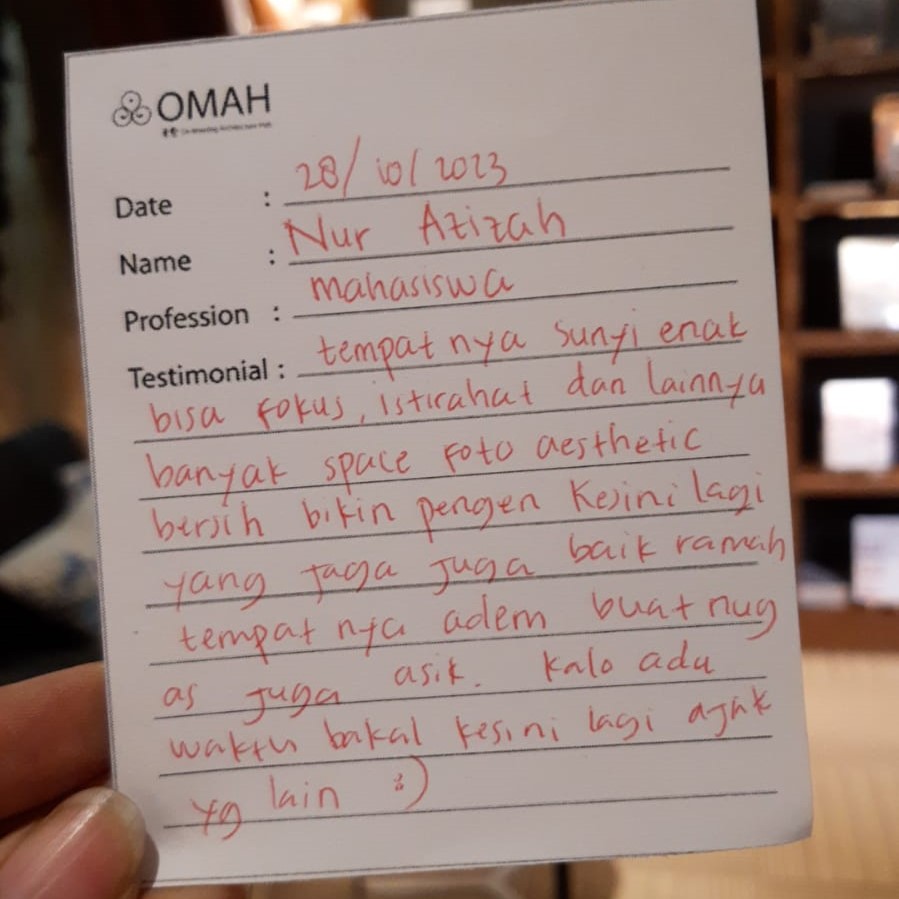 OMAH
Date : 28/10/2023
Name : Nur Azizah
Profession : mahasiswa
Testimonial : tempat nya sunyi enak
bisa fokus, istirahat dan lainnya
banyak space foto aesthetic
bersih bikin pengen kesini lagi
yang jaga juga baik ramah
tempat nya adem buat nug
as juga asik. kalo ada
waktu bakal kesini lagi ajak
yg lain :)